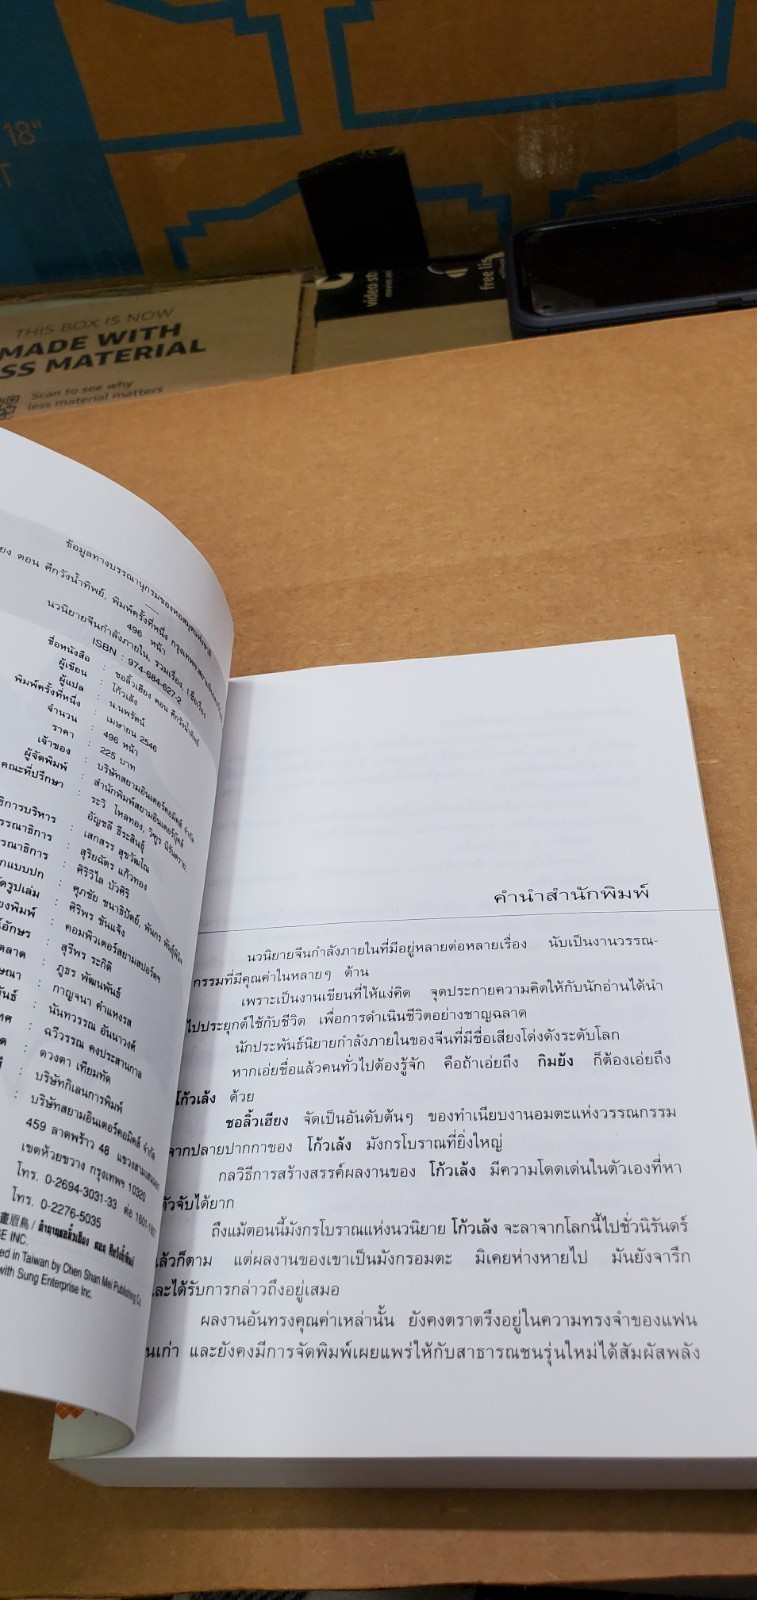 18"
THIS BOX IS NOW
MADE WITH
SS MATERIAL
Scan to see why
less material matters
video st
free lis
ข้อมูลทางบรรณานุกรมของหอสมุดแห่งชาติ
ยง ตอน ศึกวังน้ำทิพย์. พิมพ์ครั้งที่หนึ่ง
496 หน้า
นวนิยายจีนกำลังภายใน, รวมเรื่อง,
ISBN : 974-684-627-2
ชื่อหนังสือ : ชอลิ้วเฮียง ตอน ศึกวังน้ำทิพย์
ผู้เขียน : โก้วเล้ง
ผู้แปล : น.นพรัตน์
พิมพ์ครั้งที่หนึ่ง : เมษายน 2546
จำนวน : 496 หน้า
ราคา : 225 บาท
เจ้าของ : บริษัทสยามอินเตอร์คอมิคส์ จำกัด
ผู้จัดพิมพ์ : สำนักพิมพ์สยามอินเตอร์บุ๊คส์
คณะที่ปรึกษา : ระวิ โหลทอง,
อัญชลี ธีระสินธุ์
ธิการบริหาร : เสกสรร สุขวัฒโน
รรณาธิการ : สุริยฉัตร แก้วทอง
รณาธิการ : ศิริวิไล บัวศิริ
กแบบปก : ศุภชัย ชนาธิปัตย์,
ัดรูปเล่ม : ศิริพร ขันแจ้ง
ยงพิมพ์ : คอมพิวเตอร์สยามสปอร์ตฯ
์อักษร : สุรีพร ระกิติ
ตลาด : ภูธร พัฒนพันธ์
ษณา : กาญจนา คำแหงรส
พันธ์ : นันทวรรณ อันนาวงค์
เทศ : ฉวีวรรณ คงประสานกาล
ด : ดวงตา เทียมทัด
: บริษัทกิเลนการพิมพ์
: บริษัทสยามอินเตอร์คอมิคส์ จำกัด
459 ลาดพร้าว 48 แขวงสามเสนนอก
เขตห้วยขวาง กรุงเทพฯ 10320
โทร. 0-2694-3031-33 ต่อ
โทร. 0-2276-5035
畫眉鳥 /
E INC.
ed in Taiwan by Chen Shan Mei Publishing Co.
with Sung Enterprise Inc.
คำนำสำนักพิมพ์
นวนิยายจีนกำลังภายในที่มีอยู่หลายต่อหลายเรื่อง นับเป็นงานวรรณ-
กรรมที่มีคุณค่าในหลายๆ ด้าน
เพราะเป็นงานเขียนที่ให้แง่คิด จุดประกายความคิดให้กับนักอ่านได้นำ
ไปประยุกต์ใช้กับชีวิต เพื่อการดำเนินชีวิตอย่างชาญฉลาด
นักประพันธ์นิยายกำลังภายในของจีนที่มีชื่อเสียงโด่งดังระดับโลก
หากเอ่ยชื่อแล้วคนทั่วไปต้องรู้จัก คือถ้าเอ่ยถึง กิมย้ง ก็ต้องเอ่ยถึง
โก้วเล้ง ด้วย
ชอลิ้วเฮียง จัดเป็นอันดับต้นๆ ของทำเนียบงานอมตะแห่งวรรณกรรม
จากปลายปากกาของ โก้วเล้ง มังกรโบราณที่ยิ่งใหญ่
กลวิธีการสร้างสรรค์ผลงานของ โก้วเล้ง มีความโดดเด่นในตัวเองที่หา
ตัวจับได้ยาก
ถึงแม้ตอนนี้มังกรโบราณแห่งนวนิยาย โก้วเล้ง จะลาจากโลกนี้ไปชั่วนิรันดร์
แล้วก็ตาม แต่ผลงานของเขาเป็นมังกรอมตะ มิเคยห่างหายไป มันยังจารึก
และได้รับการกล่าวถึงอยู่เสมอ
ผลงานอันทรงคุณค่าเหล่านั้น ยังคงตราตรึงอยู่ในความทรงจำของแฟน
นเก่า และยังคงมีการจัดพิมพ์เผยแพร่ให้กับสาธารณชนรุ่นใหม่ได้สัมผัสพลัง